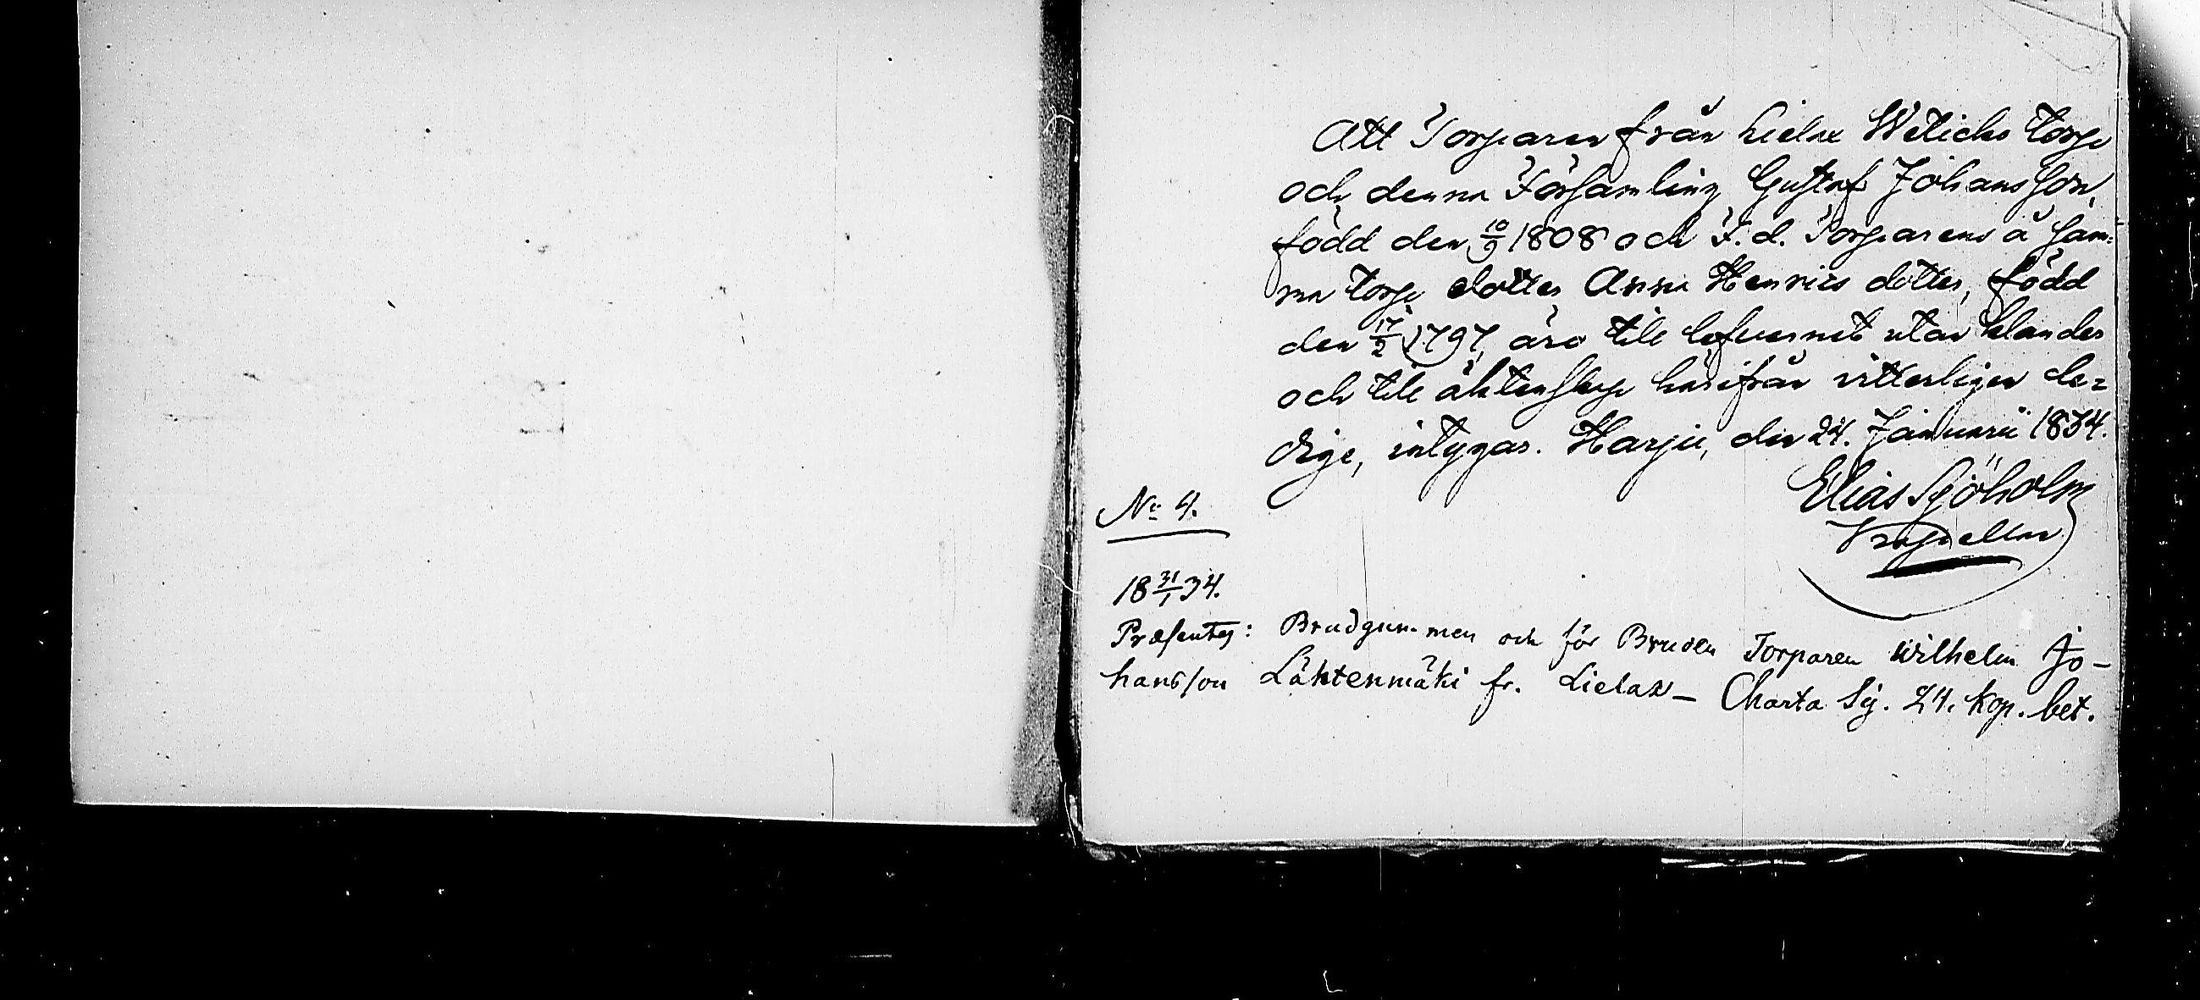 Att Torparen från Lielax Wetichs torp
och denna Församling Gustaf Johansson,
född den 10/9 1808 och F. d. Torparens å sam-
ma torp dotter Anna Henrics dotter, född
den 17/2 1797, äro till lefvernet utan klander
och till äktenskap härifrån vitterligen le=
dige, intygar. Harju, den 24. Januarii 1834.
Elias Sjöholm
Kapellan
No 4.
18 31/1 34.
Præsentes: Brudgummen och för Bruden Torparen Wilhelm Jo-
hansson Lähtenmäki fr. Lielax – Charta Sig. 24. kop. bet.